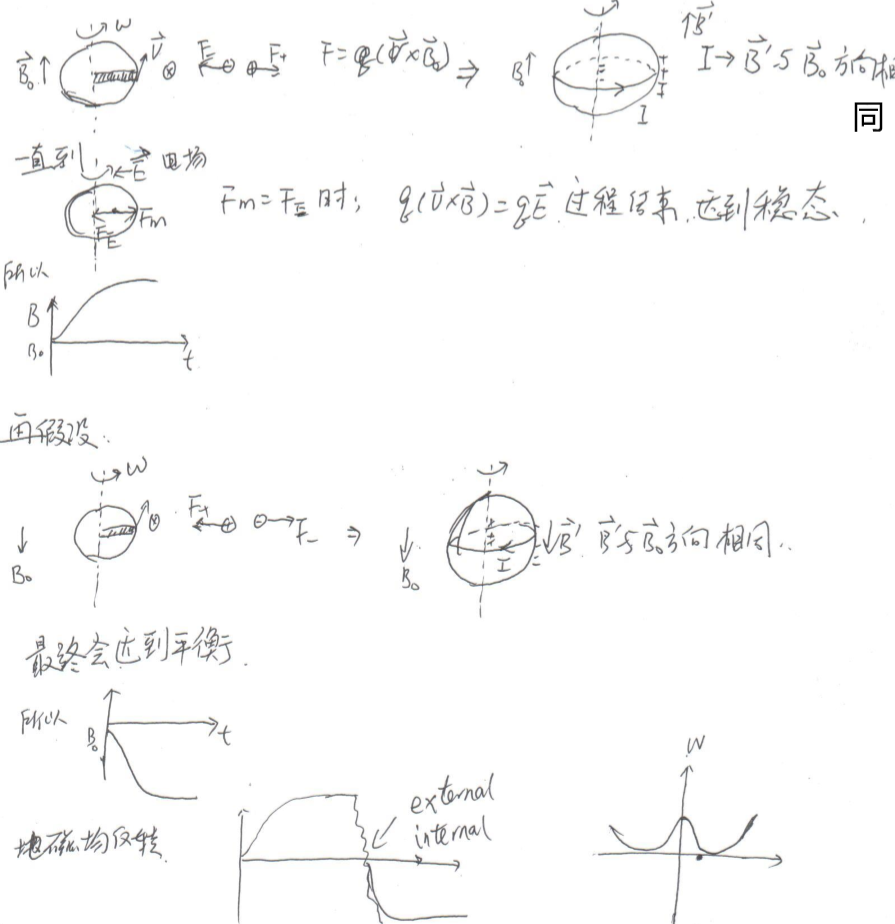 W
B₀↑ V ⊗ F₋ F₊ F=q(V×B₀) ⇒ B₀↑ I ↑B′ I→B′与B₀方向相
同
一直到 E 电场
F_E F_m F_m=F_E时; q(V×B)=qE 过程结束,达到稳态.
所以
B
B₀
t
再假设:
W
B₀ ⊗ F₊ ⊕ ⊖ F₋ ⇒ B₀ I ↓B′ B′与B₀方向相同..
最终会达到平衡.
所以 B₀ t
W
external
internal
地磁场反转